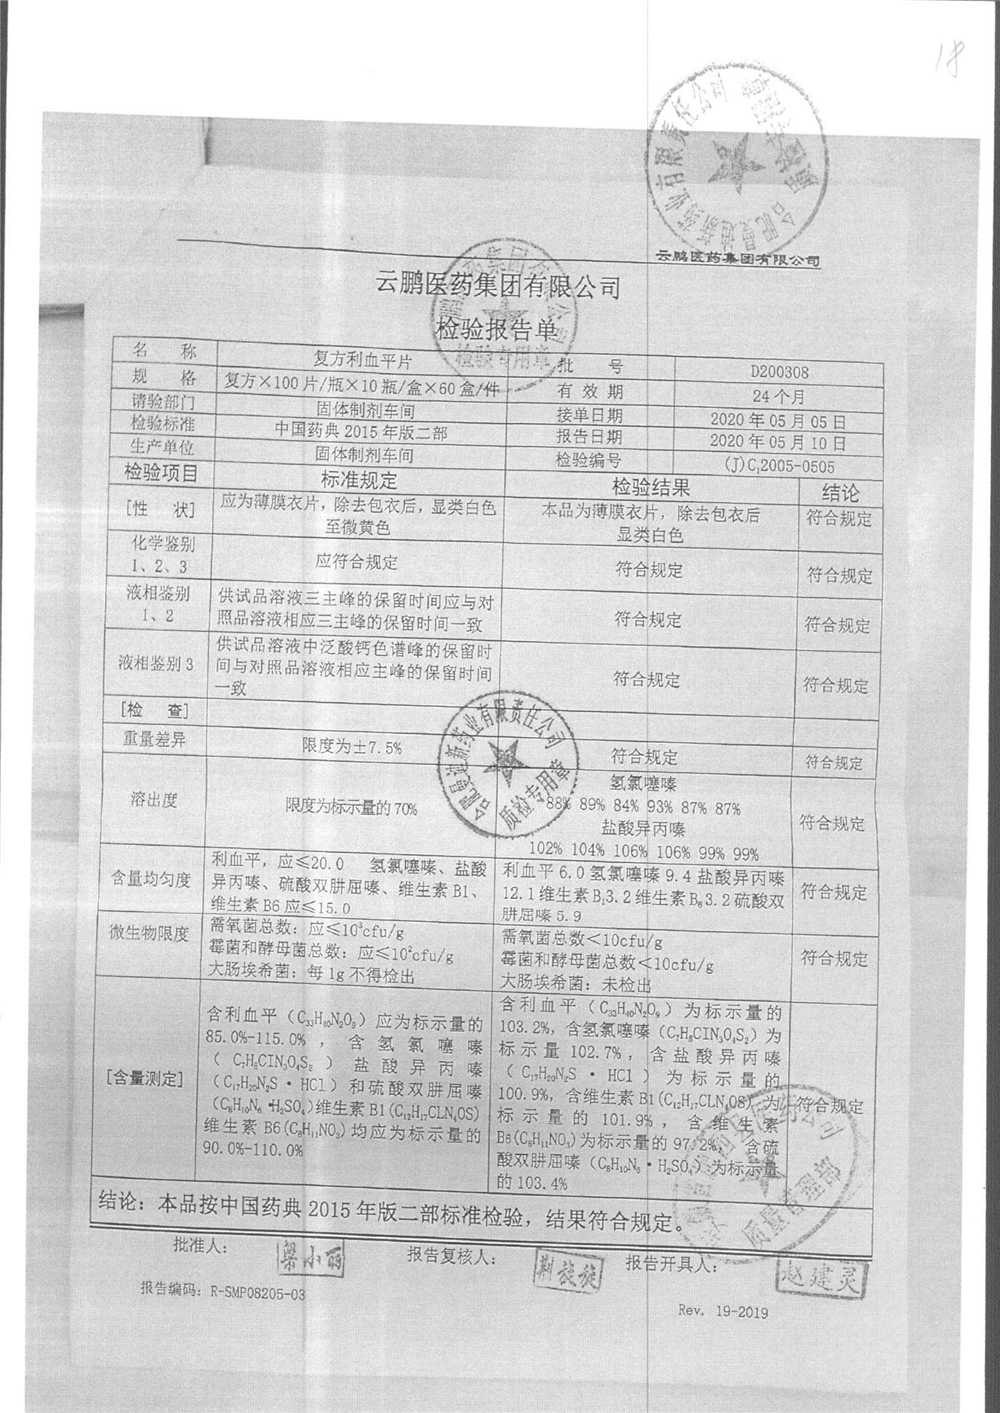 18
合肥曼迪新药业有限责任公司
质检专用章
云鹏医药集团有限公司
云鹏医药集团有限公司
检验报告单
检验专用章
名 称 复方利血平片 批 号 D200308
规 格 复方×100片/瓶×10瓶/盒×60盒/件 有 效 期 24个月
请验部门 固体制剂车间 接单日期 2020年05月05日
检验标准 中国药典2015年版二部 报告日期 2020年05月10日
生产单位 固体制剂车间 检验编号 (J)C,2005-0505
检验项目 标准规定 检验结果 结论
[性 状] 应为薄膜衣片，除去包衣后，显类白色 本品为薄膜衣片，除去包衣后 符合规定
至微黄色 显类白色
化学鉴别 应符合规定 符合规定 符合规定
1、2、3
液相鉴别 供试品溶液三主峰的保留时间应与对 符合规定 符合规定
1、2 照品溶液相应三主峰的保留时间一致
供试品溶液中泛酸钙色谱峰的保留时
液相鉴别3 间与对照品溶液相应主峰的保留时间 符合规定 符合规定
一致
[检 查]
重量差异 限度为±7.5% 符合规定 符合规定
合肥曼迪新药业有限责任公司
质检专用章
氢氯噻嗪
溶出度 限度为标示量的70% 88% 89% 84% 93% 87% 87% 符合规定
盐酸异丙嗪
102% 104% 106% 106% 99% 99%
利血平，应≤20.0 氢氯噻嗪、盐酸 利血平6.0氢氯噻嗪9.4盐酸异丙嗪
含量均匀度 异丙嗪、硫酸双肼屈嗪、维生素B1、 12.1维生素B₁3.2维生素B₆3.2硫酸双 符合规定
维生素B6应≤15.0 肼屈嗪5.9
微生物限度 需氧菌总数：应≤10³cfu/g 需氧菌总数<10cfu/g 符合规定
霉菌和酵母菌总数：应≤10²cfu/g 霉菌和酵母菌总数<10cfu/g
大肠埃希菌：每1g不得检出 大肠埃希菌：未检出
含利血平（C₃₃H₄₀N₂O₉）应为标示量的 含利血平（C₃₃H₄₀N₂O₉）为标示量的
85.0%-115.0%，含氢氯噻嗪 103.2%，含氢氯噻嗪（C₇H₈CIN₃O₄S₂）为
（C₇H₈CIN₃O₄S₂）盐酸异丙嗪 标示量102.7%，含盐酸异丙嗪
[含量测定] （C₁₇H₂₀N₂S·HCl）和硫酸双肼屈嗪 （C₁₇H₂₀N₂S·HCl）为标示量的 符合规定
（C₈H₁₀N₆·H₂SO₄）维生素B1(C₁₂H₁₇CLN₄OS) 100.9%，含维生素B1(C₁₂H₁₇CLN₄OS)为
维生素B6(C₈H₁₁NO₃)均应为标示量的 标示量的101.9%，含维生素
90.0%-110.0% B6(C₈H₁₁NO₃)为标示量的97.2%，含硫
酸双肼屈嗪（C₈H₁₀N₆·H₂SO₄）为标示量
的103.4%
质量管理部
结论：本品按中国药典2015年版二部标准检验，结果符合规定。
批准人： 梁小丽 报告复核人： 荆旋旋 报告开具人： 赵建灵
报告编码：R-SMP08205-03 Rev. 19-2019